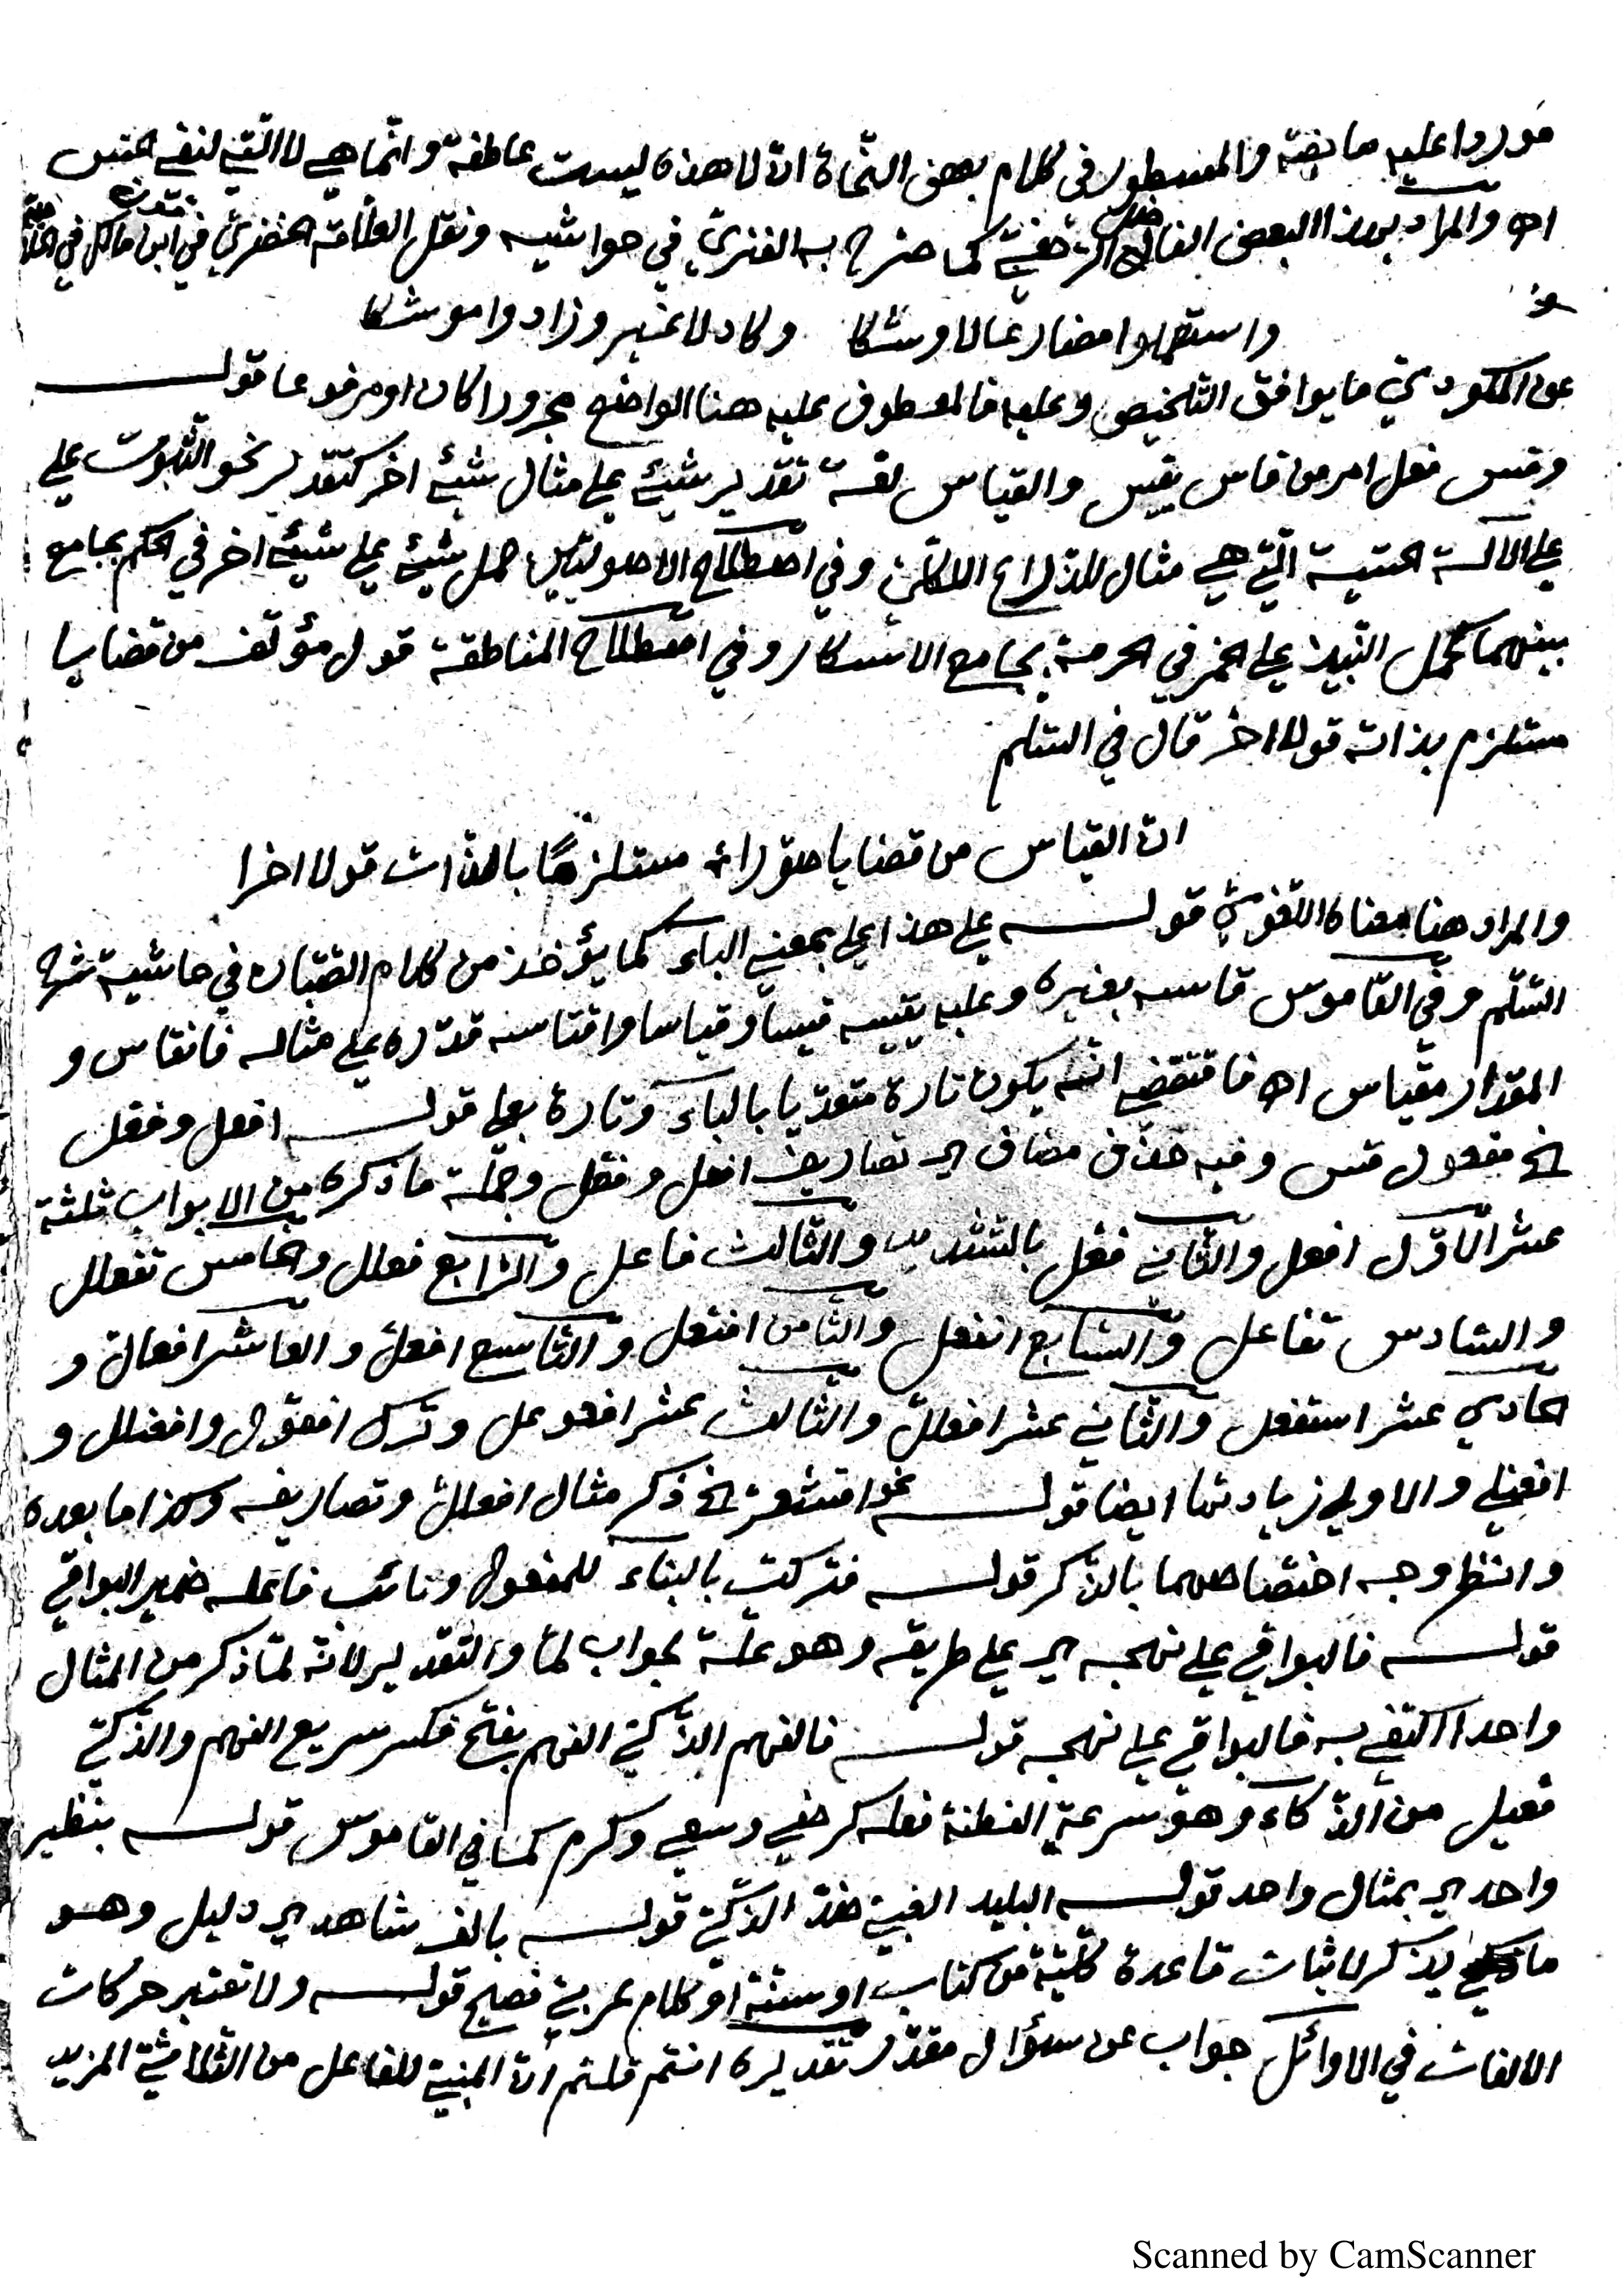 موردا عليه ما نصّه والمسطور في كلام بعض النّحاة انّ لا هذه ليست عاطفة وانّما هي لا الّتي لنفي الجنس
اه والمراد بهذا البعض الفاضل كما صرّح به الفنريّ في حواشيه ونقل العلّامة الخضريّ في ابن مالك في
واستعملوا مضارعا لاوشكا وكاد لا غير وزادوا موشكا
عن المكوديّ ما يوافق التلخيص وعليه فالمعطوف عليه هنا الواضح مجرورا كان او مرفوعا قوله
وقس فعل امر من قاس يقيس والقياس لغة تقدير شيئ على مثال شيئ اخر كتقدير نحو الثّوب على
على الالة الّتي هي مثال للذراع وفي اصطلاح الاصوليّين حمل شيئ على شيئ اخر في الحكم بجامع
بينهما كحمل النّبيذ على الخمر في الحرمة بجامع الاسكار وفي اصطلاح المناطقة قول مؤلّف من قضايا
مستلزم بذاته قولا اخر قال في السّلم
انّ القياس من قضايا صوّرا مستلزمًا بالذّات قولا اخرا
والمراد هنا معناه اللّغويّ قوله على هذا على بمعنى الباء كما يؤخذ من كلام الصّبّان في حاشية شرح
السّلّم وفي القاموس قاسه بغيره وعليه يقيسه قيسا وقياسا واقتاسه قدّره على مثاله فانقاس و
المقدار مقياس اه فاقتضى انّه يكون تارة متعدّيا بالباء وتارة بعلى قوله افعل وفعّل
الخ مفعول قس وفيه حذف مضاف اي تصاريف افعل وفعّل وجملة ما ذكره من الابواب ثلثة
عشر الاوّل افعل والثّاني فعّل بالتشديد والثّالث فاعل والرّابع فعلل والخامس تفعلل
والسّادس تفاعل والسّابع انفعل والثّامن افتعل والتّاسع افعلّ والعاشر افعالّ و
الحادي عشر استفعل والثّاني عشر افعللّ والثّالث عشر افعوعل وترك افعوّل وافعنلل و
افعنلى والاولى زيادتها ايضا قوله نحو اقشعرّ الخ ذكر مثال افعللّ وتصاريفه وكذا ما بعده
وانظر وجه اختصاصهما بالذّكر قوله فتركت بالبناء للمفعول ونائب فاعله ضمير البواقي
قوله فالبواقي على نهجه اي على طريقه وهو علّة لجواب لمّا والتقدير لانّه لمّا ذكر من المثال
واحدا اكتفي به فالبواقي على نهجه قوله فالفهم الذّكيّ الفهم بفتح فكسر سريع الفهم والذّكيّ
فعيل من الذّكاء وهو سرعة الفطنة فعله كرضي وسعى وكرم كما في القاموس قوله بنظير
واحد اي بمثال واحد قوله البليد الغبيّ ضدّ الذّكيّ قوله بالف شاهد اي دليل وهو
ما يذكر لاثبات قاعدة كلّيّة من كتاب او سنّة او كلام عربيّ فصيح قوله ولا تعتبر حركات
الالفات في الاوائل جواب عن سؤال مقدّر تقديره انتم قلتم انّ المبنيّ للفاعل من الثّلاثيّ المزيد
Scanned by CamScanner